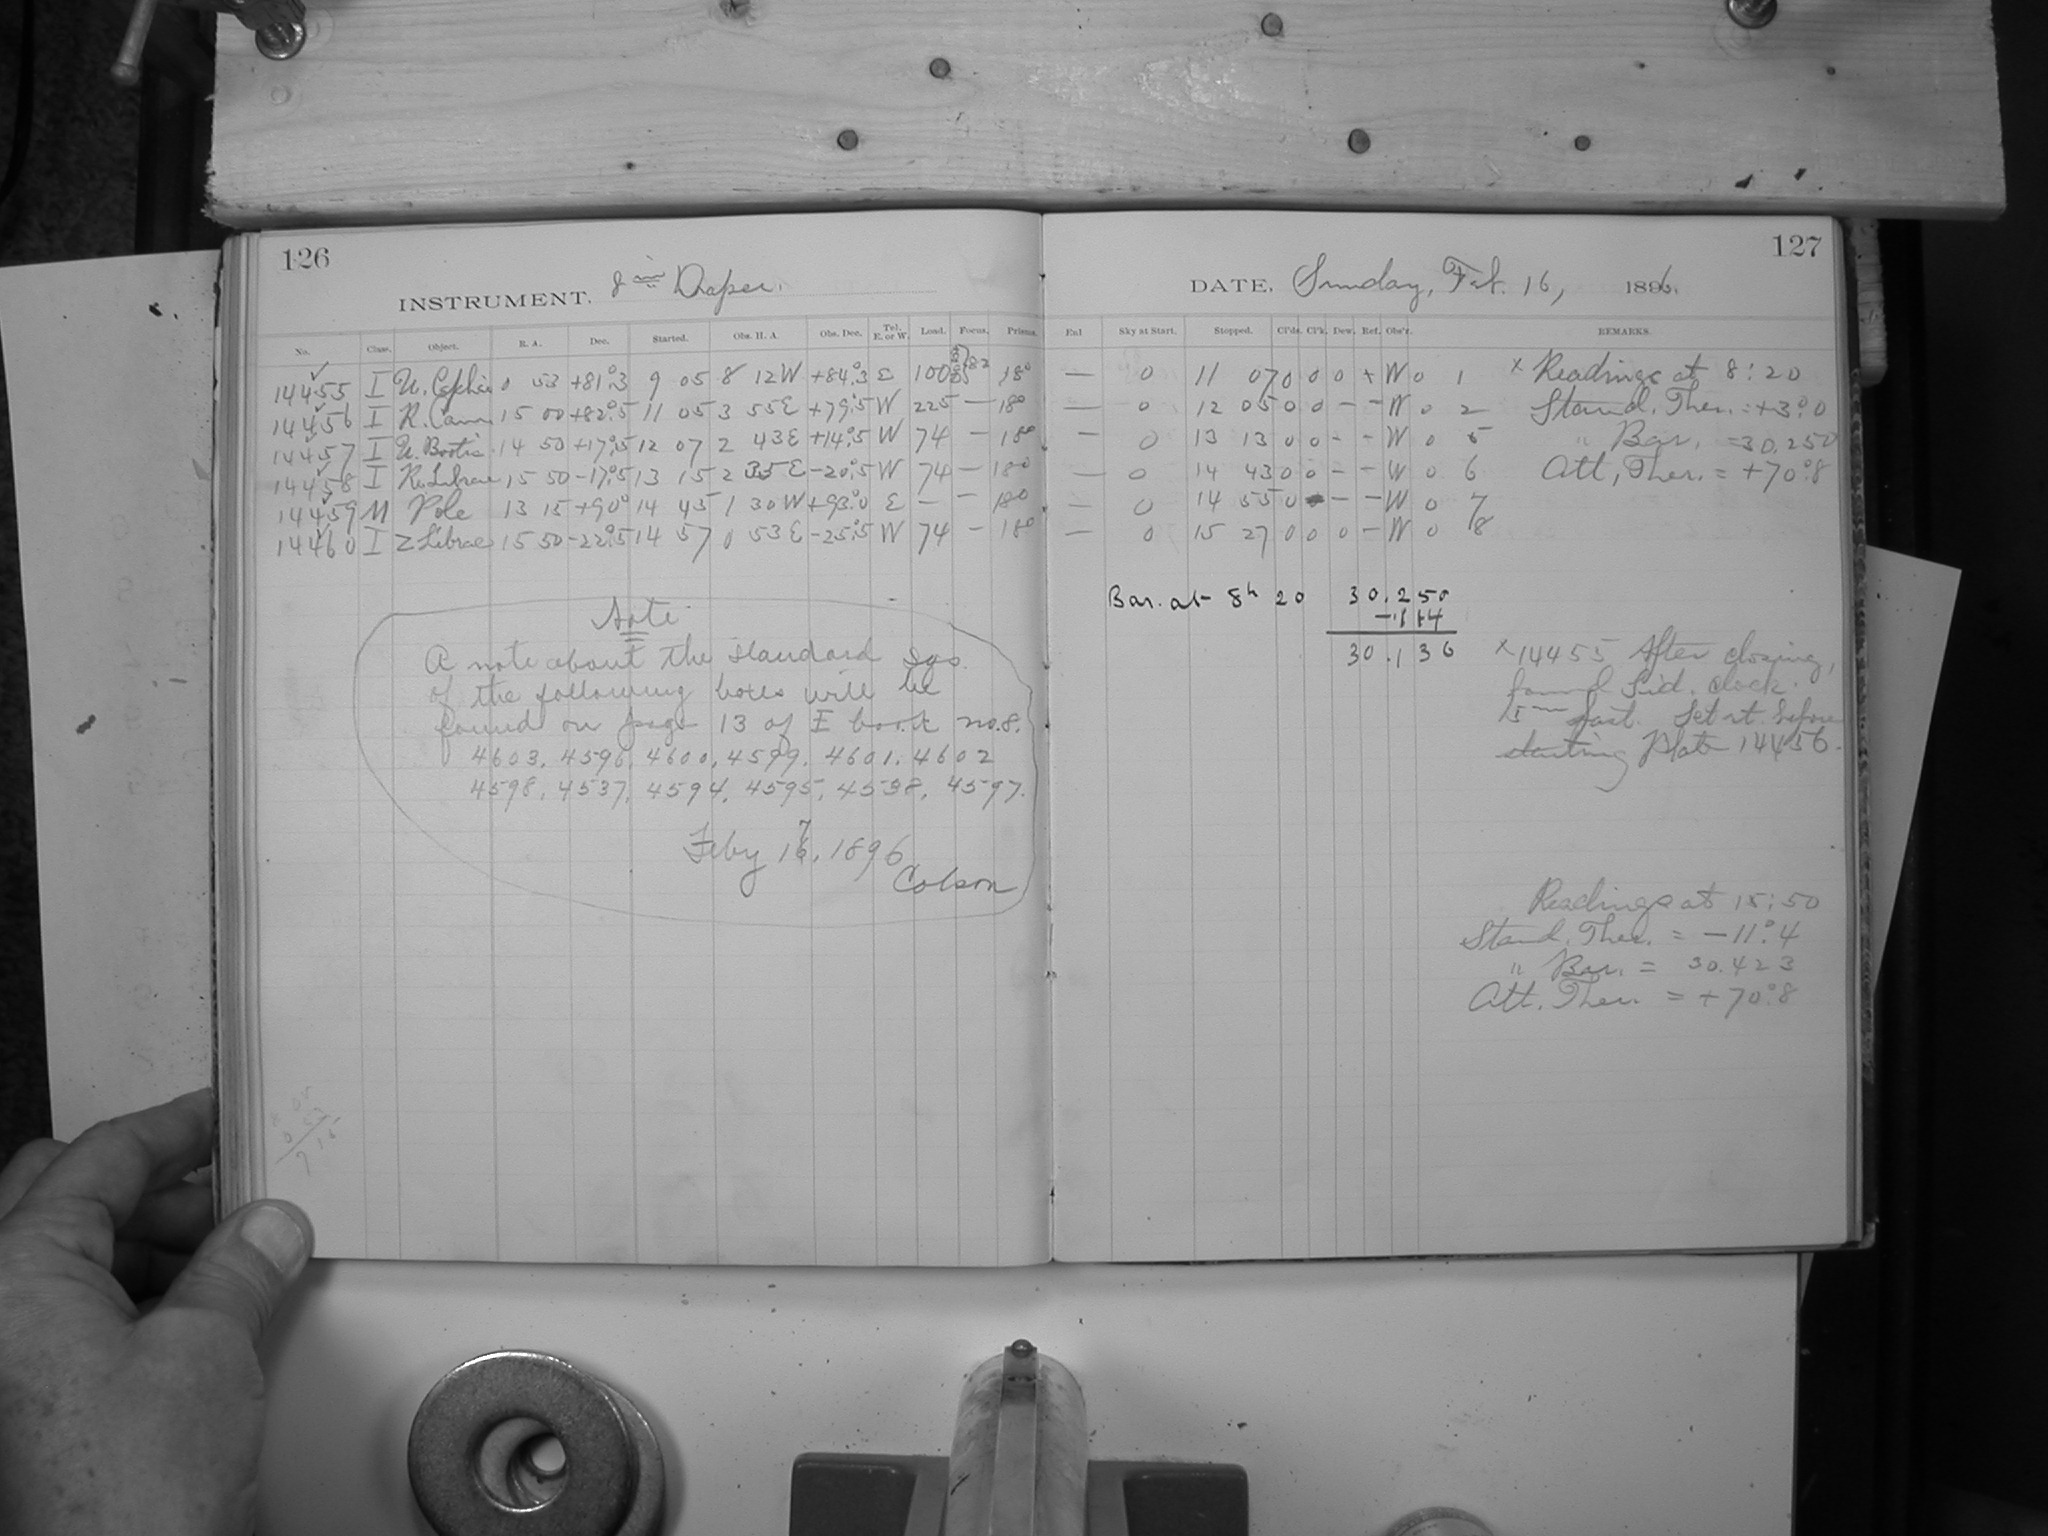 126
127
INSTRUMENT. 8 in Draper.
DATE, Sunday, Feb. 16, 1896.
No. Class. Object. R. A. Dec. Started. Obs. H. A. Obs. Dec. Tel. E. or W. Load. Focus. Prisms. Ex1 Sky at Start. Stopped. Cl'ds. Cl'k. Dew. Ref. Obs'r. REMARKS.
14455 I U. Cephei 0 53 +81°.3 9 05 8 12W +84°.3 E 100 82 18° — 0 11 07 0 0 0 + W 0 1
14456 I R. Cam 15 00 +82°.5 11 05 3 55E +79°.5 W 225 — 18° — 0 12 05 0 0 – – W 0 2
14457 I U. Bootis 14 50 +17°.5 12 07 2 43E +14°.5 W 74 – 18° – 0 13 13 0 0 – – W 0 5
14458 I R. Librae 15 50 –17°.5 13 15 2 35E –20°.5 W 74 – 18° — 0 14 43 0 0 – – W 0 6
14459 M Pole 13 15 +90° 14 45 1 30W +93°.0 E – – 18° – 0 14 55 0 – – W 0 7
14460 I Z Librae 15 50 –22°.5 14 57 0 53E –25°.5 W 74 – 18° – 0 15 27 0 0 0 – W 0 8
x Readings at 8:20
Stand. Ther. = +3°.0
" Bar. = 30.250
Att. Ther. = +70°.8
Note
A note about the standard sqs.
of the following boxes will be
found on page 13 of I book no. 8.
4603, 4596, 4600, 4599, 4601, 4602
4598, 4537, 4594, 4595, 4538, 4597.
Feby 17, 1896
Colson
Bar. at 8h 20 30.250
–.114
30.136
x 14455 After closing,
found Sid. clock
5m fast. Set it before
starting Plate 14456.
Readings at 15:50
Stand. Ther. = –11°.4
" Bar. = 30.423
Att. Ther. = +70°.8